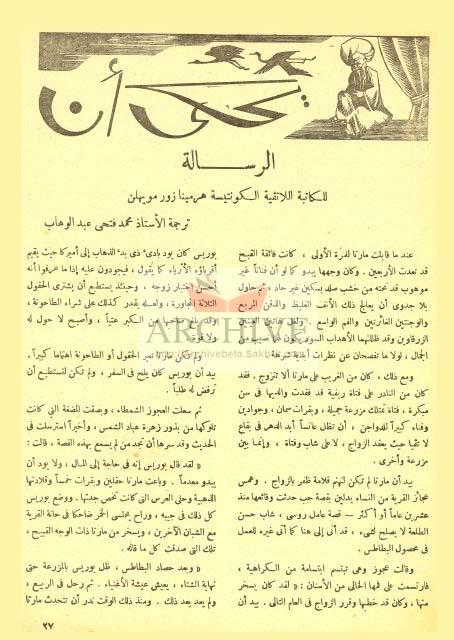 يحكى أن
الرسالة
للكاتبة اللاتفية الكونتيسة هرمينا زور موبهلن
ترجمة الأستاذ محمد فتحى عبد الوهاب
عند ما قابلت مارتا للمرة الأولى ، كانت فائقة القبح
قد تعدت الأربعين . وكان وجهها يبدو كما لو أن فناناً غير
موهوب قد نحته من خشب صلد بسكين غير حاد ، ثم حاول
بلا جدوى أن يعالج ذلك الأنف الغليظ والذقن المربع
والوجنتين الغائرتين والفم الواسع .
الزرقاوين وقد ظللتهما الأهداب السود يكون لهما نصيب من
الجمال ، لولا ما تفصحان عن نظرات أبدية شرطة
ومع ذلك ، كان من الغريب على مارتا ألا تتزوج . فقد
كان من النادر على فتاة ريفية قد فقدت والديها فى سن
مبكرة ، فتاة تمتلك مزرعة جميلة ، وبقرات سمان ، وجوادين
وفناء كبيراً للدواجن ، أن تظل عانساً أبد الدهى فى بقاع
لاتفيا حيث يعقد الزواج ، لا على شاب وفتاة ، وإنما بين
مزرعة وأخرى .
بيد أن مارتا لم تكن لتهم قلامة ظفر بالزواج . وهمس
عجائز القرية من النساء يدلين بقصة حب حدثت وقائعها منذ
عشرين عاماً أو أكثر – قصة عامل روسى ، شاب حسن
الطلعة لا يصلح لشىء ، قد أتى إلى هنا كما أتى غيره للعمل
فى محصول البطاطس .
وقالت عجوز وهى تبتسم ابتسامة من الكراهية ،
فارتسمت على فمها الخالى من الأسنان : « لقد كان يسخر
منها ، وكان قد خطبها وقرر الزواج فى العام التالى . بيد أن
بوريس كان يود بادئ ذى بدء الذهاب إلى أميركا حيث يقيم
أقرباؤه الأثرياء كما يقول ، فيجودون عليه إذا ما عرفوا أنه
أحسن اختيار زوجه ، وحينئذ يستطيع أن يشترى الحقول
الثلاثة المجاورة ، ولعله يقدر كذلك على شراء الطاحونة ،
صاحبها من الكبر عتياً ، وأصبح لا حول له
ولا قوة .
ولم تكن مارتا تعير الحقول أو الطاحونة اهتماما كبيراً .
بيد أن بوريس كان يلح فى السفر ، ولم تكن لتستطيع أن
ترفض له طلباً .
ثم سعلت العجوز الشمطاء ، وبصقت المضغة التى كانت
تلوكها من بذور زهرة عباد الشمس ، وأخيراً استرسلت فى
الحديث وقد سرها أن تجد من لم يسمع بهذه القصة ، قالت :
« لقد قال بوريس إنه فى حاجة إلى المال ، ولا يود أن
يبدو معدماً . وباعت مارتا حقلين وبقرات خمساً وقلادتها
الذهبية وحلى العرس التى كانت تخص جدتها . ووضع بوريس
كل ذلك فى جيبه ، وراح يحتسى الخمر ضاحكا فى حانة القرية
مع الشبان الآخرين ، ويسخر من مارتا ذات الوجه القبيح ،
تلك التى صدقت كل ما قاله .
« وبعد حصاد البطاطس ، ظل بوريس بالمزرعة حتى
نهاية الشتاء ، يعيش عيشة الأغنياء . ثم رحل فى الربيع ،
ولم يعد بعد ذلك . ومنذ ذلك الوقت ندر أن تتحدث مارتا
٢٧
ARCHIVE